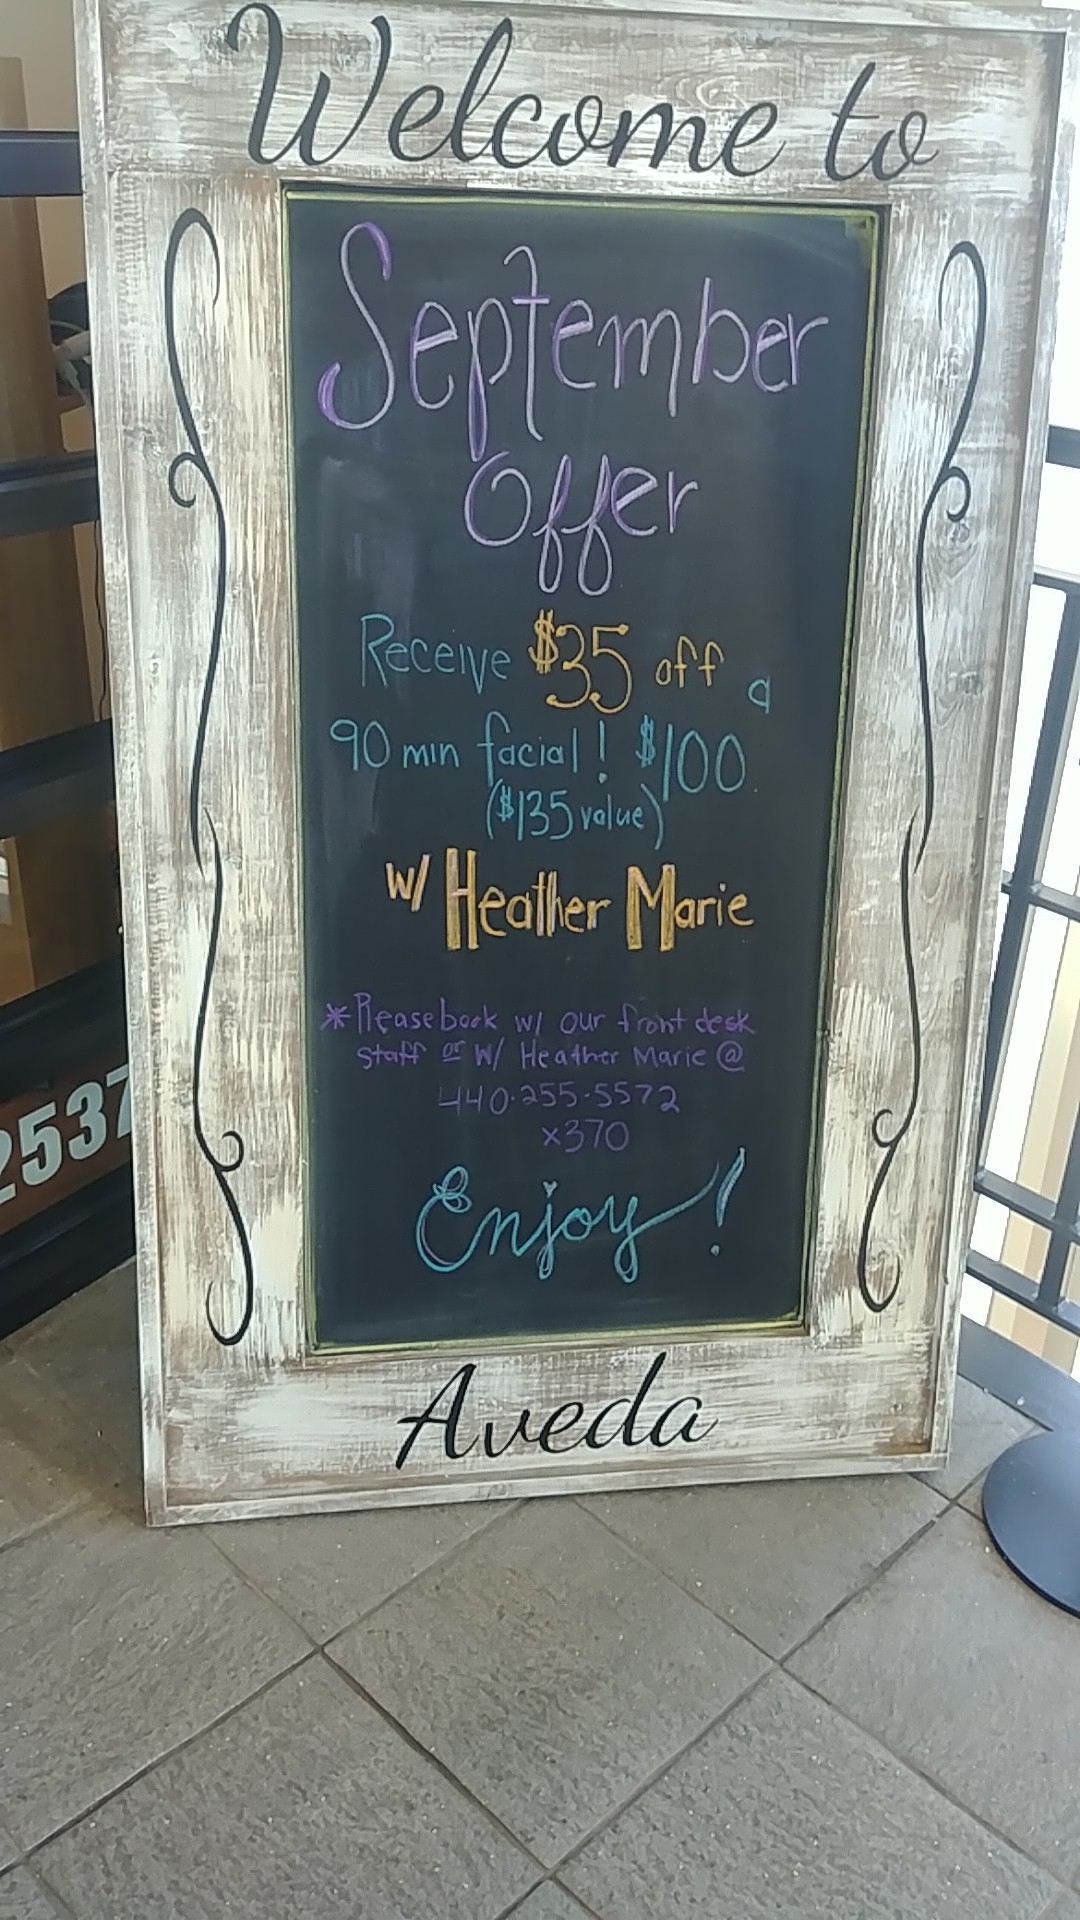 Welcome to
September
Offer
Receive $35 off a
90 min facial! $100
($135 value)
w/ Heather Marie
*Please book w/ our front desk
staff or w/ Heather Marie @
440.255.5572
x370
Enjoy!
Aveda
2537